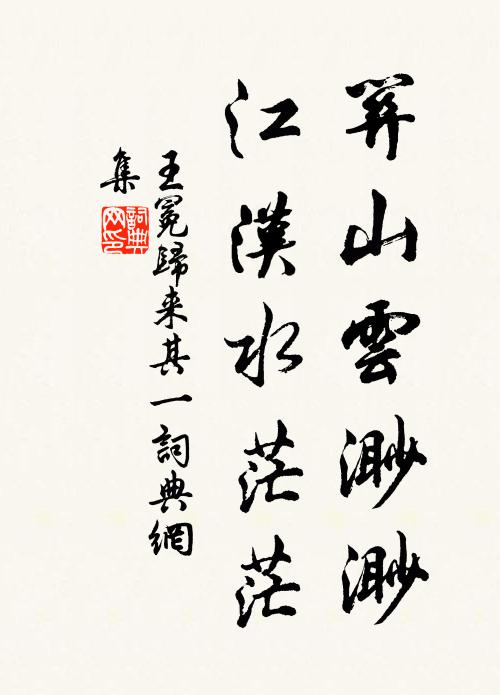 關山雲渺渺
江漢水茫茫
王冕歸来其一詞典網
集
詞典
网印